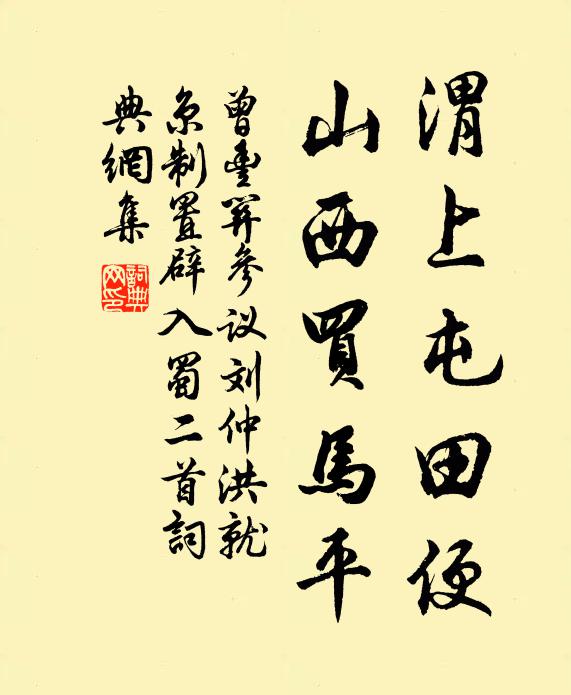 渭上屯田便
山西買馬平
曾豐參议刘仲洪就
京制置辟入蜀二首詞
典網集
詞典网印